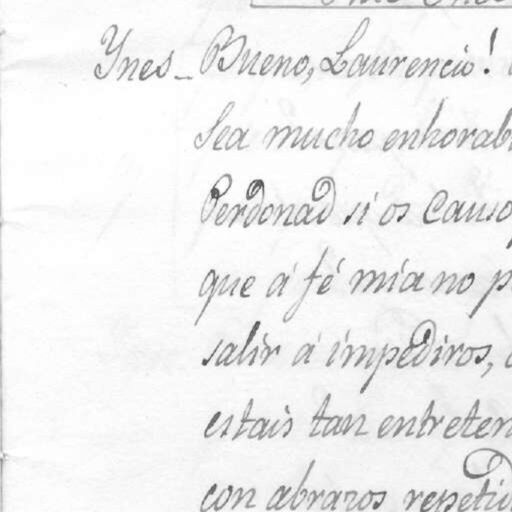 Ynes_ Bueno, Laurencio!
Sea mucho enhorab
Perdonad si os causo
que á fé mia no p
salir á impediros,
estais tan entreten
con abrazos repetid